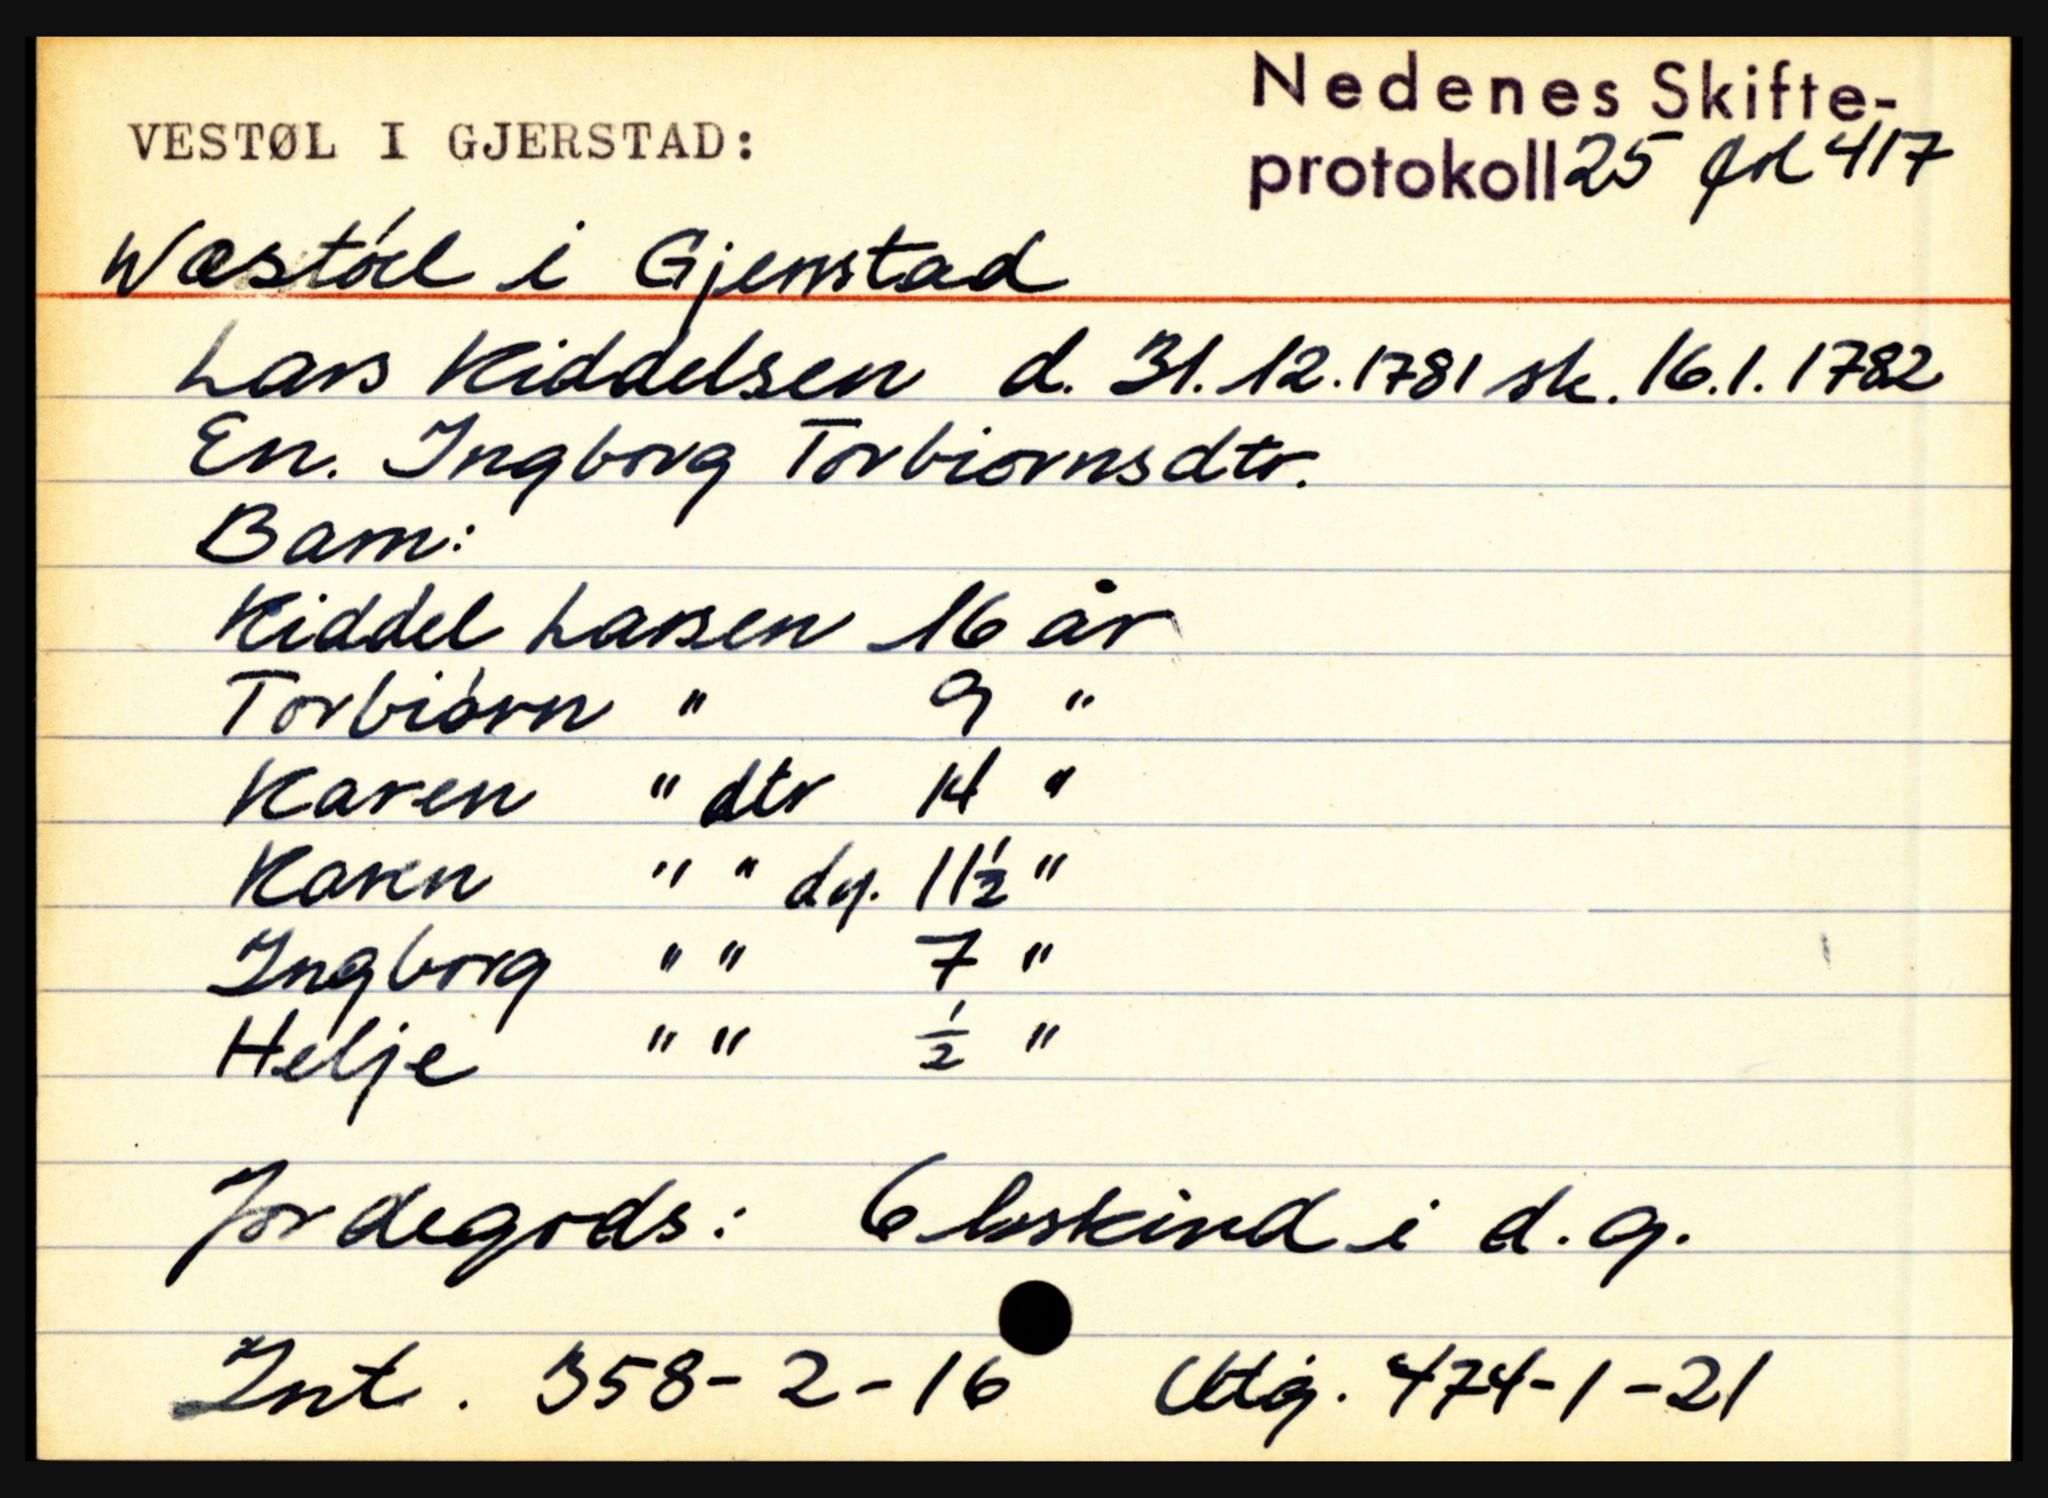 Nedenes Skifte-
VESTØL I GJERSTAD:
protokoll 25 fol 417
Wæstöel i Gjerrstad
Lars Kiddelsen d. 31.12.1781 sk. 16.1.1782
En. Ingborg Torbiornsdtr.
Barn:
Kiddel Larsen 16 år
Torbiörn " 9 "
Karen " dtr 14 "
Karen " " dy. 11½ "
Ingborg " " 7 "
Helje " " ½ "
Jordegods: 6 bskind i d.g.
Int. 358-2-16 Utg. 474-1-21